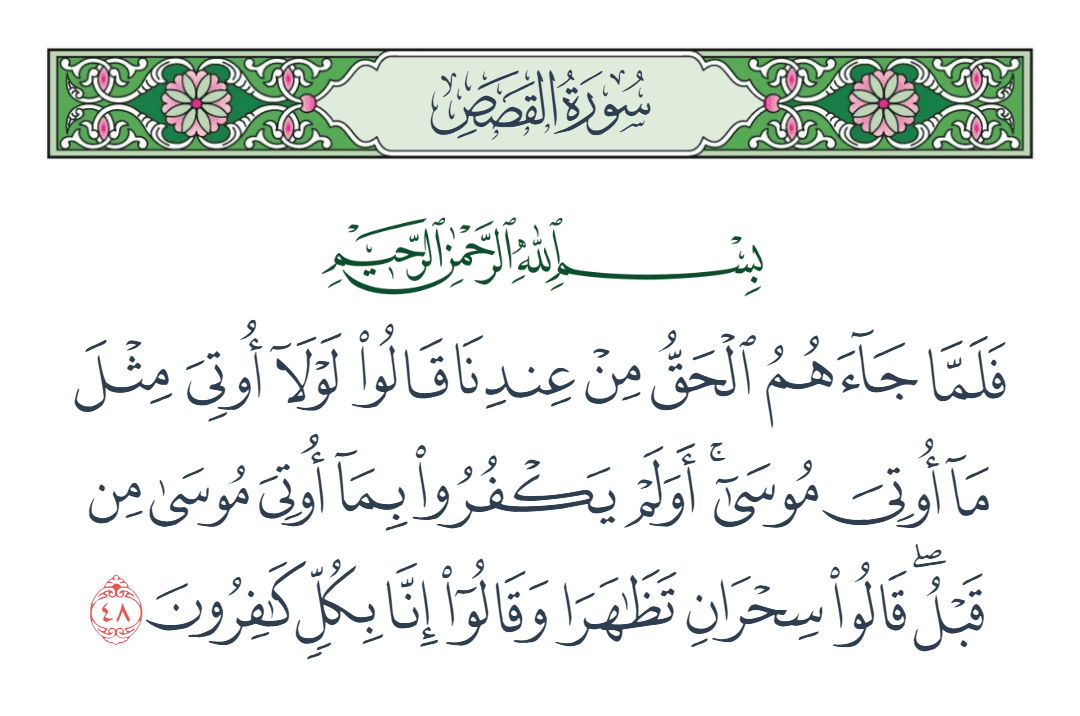 سُورَةُ القَصَصِ
بِسْمِ ٱللَّهِ ٱلرَّحْمَٰنِ ٱلرَّحِيمِ
فَلَمَّا جَآءَهُمُ ٱلْحَقُّ مِنْ عِندِنَا قَالُوا۟ لَوْلَآ أُوتِىَ مِثْلَ
مَآ أُوتِىَ مُوسَىٰٓ ۚ أَوَلَمْ يَكْفُرُوا۟ بِمَآ أُوتِىَ مُوسَىٰ مِن
قَبْلُ ۖ قَالُوا۟ سِحْرَانِ تَظَٰهَرَا وَقَالُوٓا۟ إِنَّا بِكُلٍّ كَٰفِرُونَ ٤٨